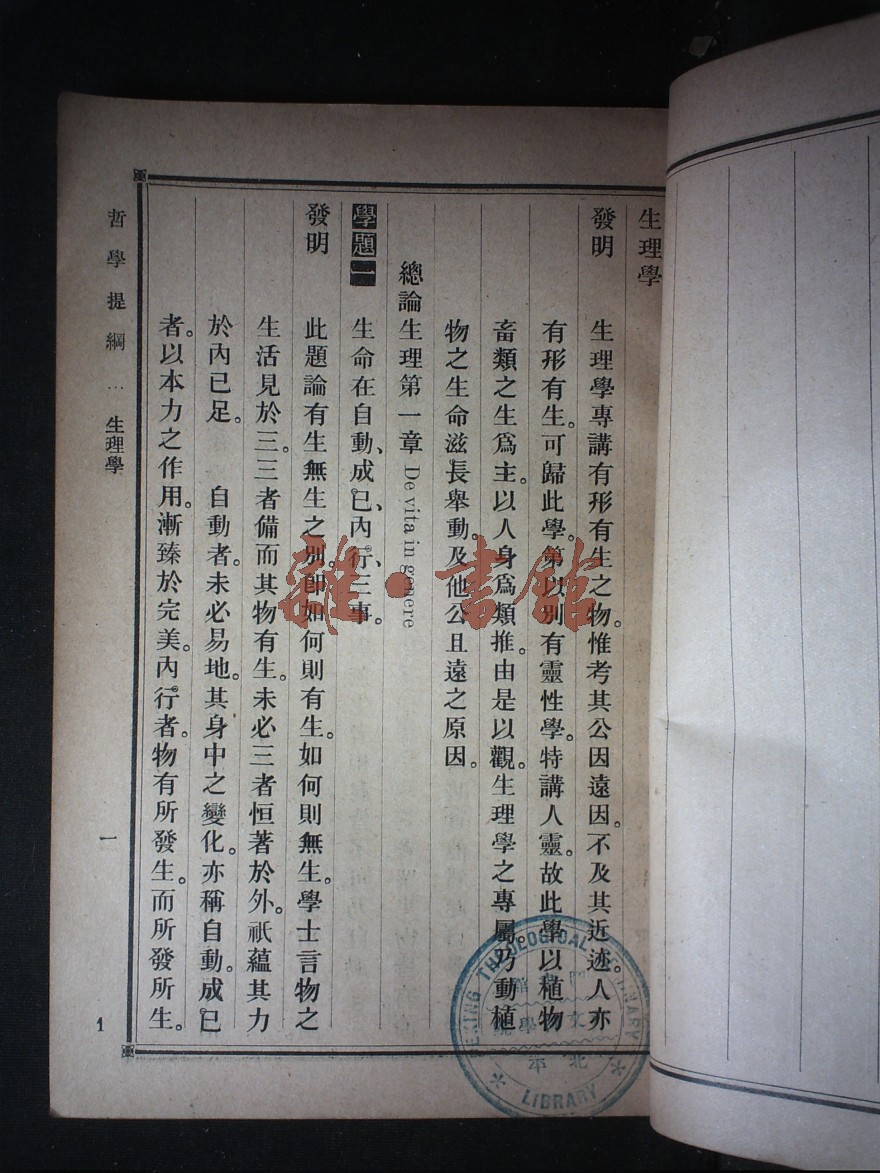 生理學
發明　生理學專講有形有生之物。惟考其公因遠因。不及其近迹。人亦
有形有生。可歸此學。第以別有靈性學。特講人靈。故此學以植物
畜類之生爲主。以人身爲類推。由是以觀。生理學之專屬。乃動植
物之生命滋長舉動。及他公且遠之原因。
總論生理第一章 De vita in genere
學題一　生命在自動、成己、內行、三事。
發明　此題論有生無生之別。卽如何則有生。如何則無生。學士言物之
生活見於三。三者備而其物有生。未必三者恒著於外。祇蘊其力
於內已足。　自動者。未必易地。其身中之變化。亦稱自動。成己
者。以本力之作用。漸臻於完美。內行者。物有所發生。而所發所生。
哲學提綱　生理學　一　1
雜·書館
PEKING THEOLOGICAL SEMINARY
LIBRARY